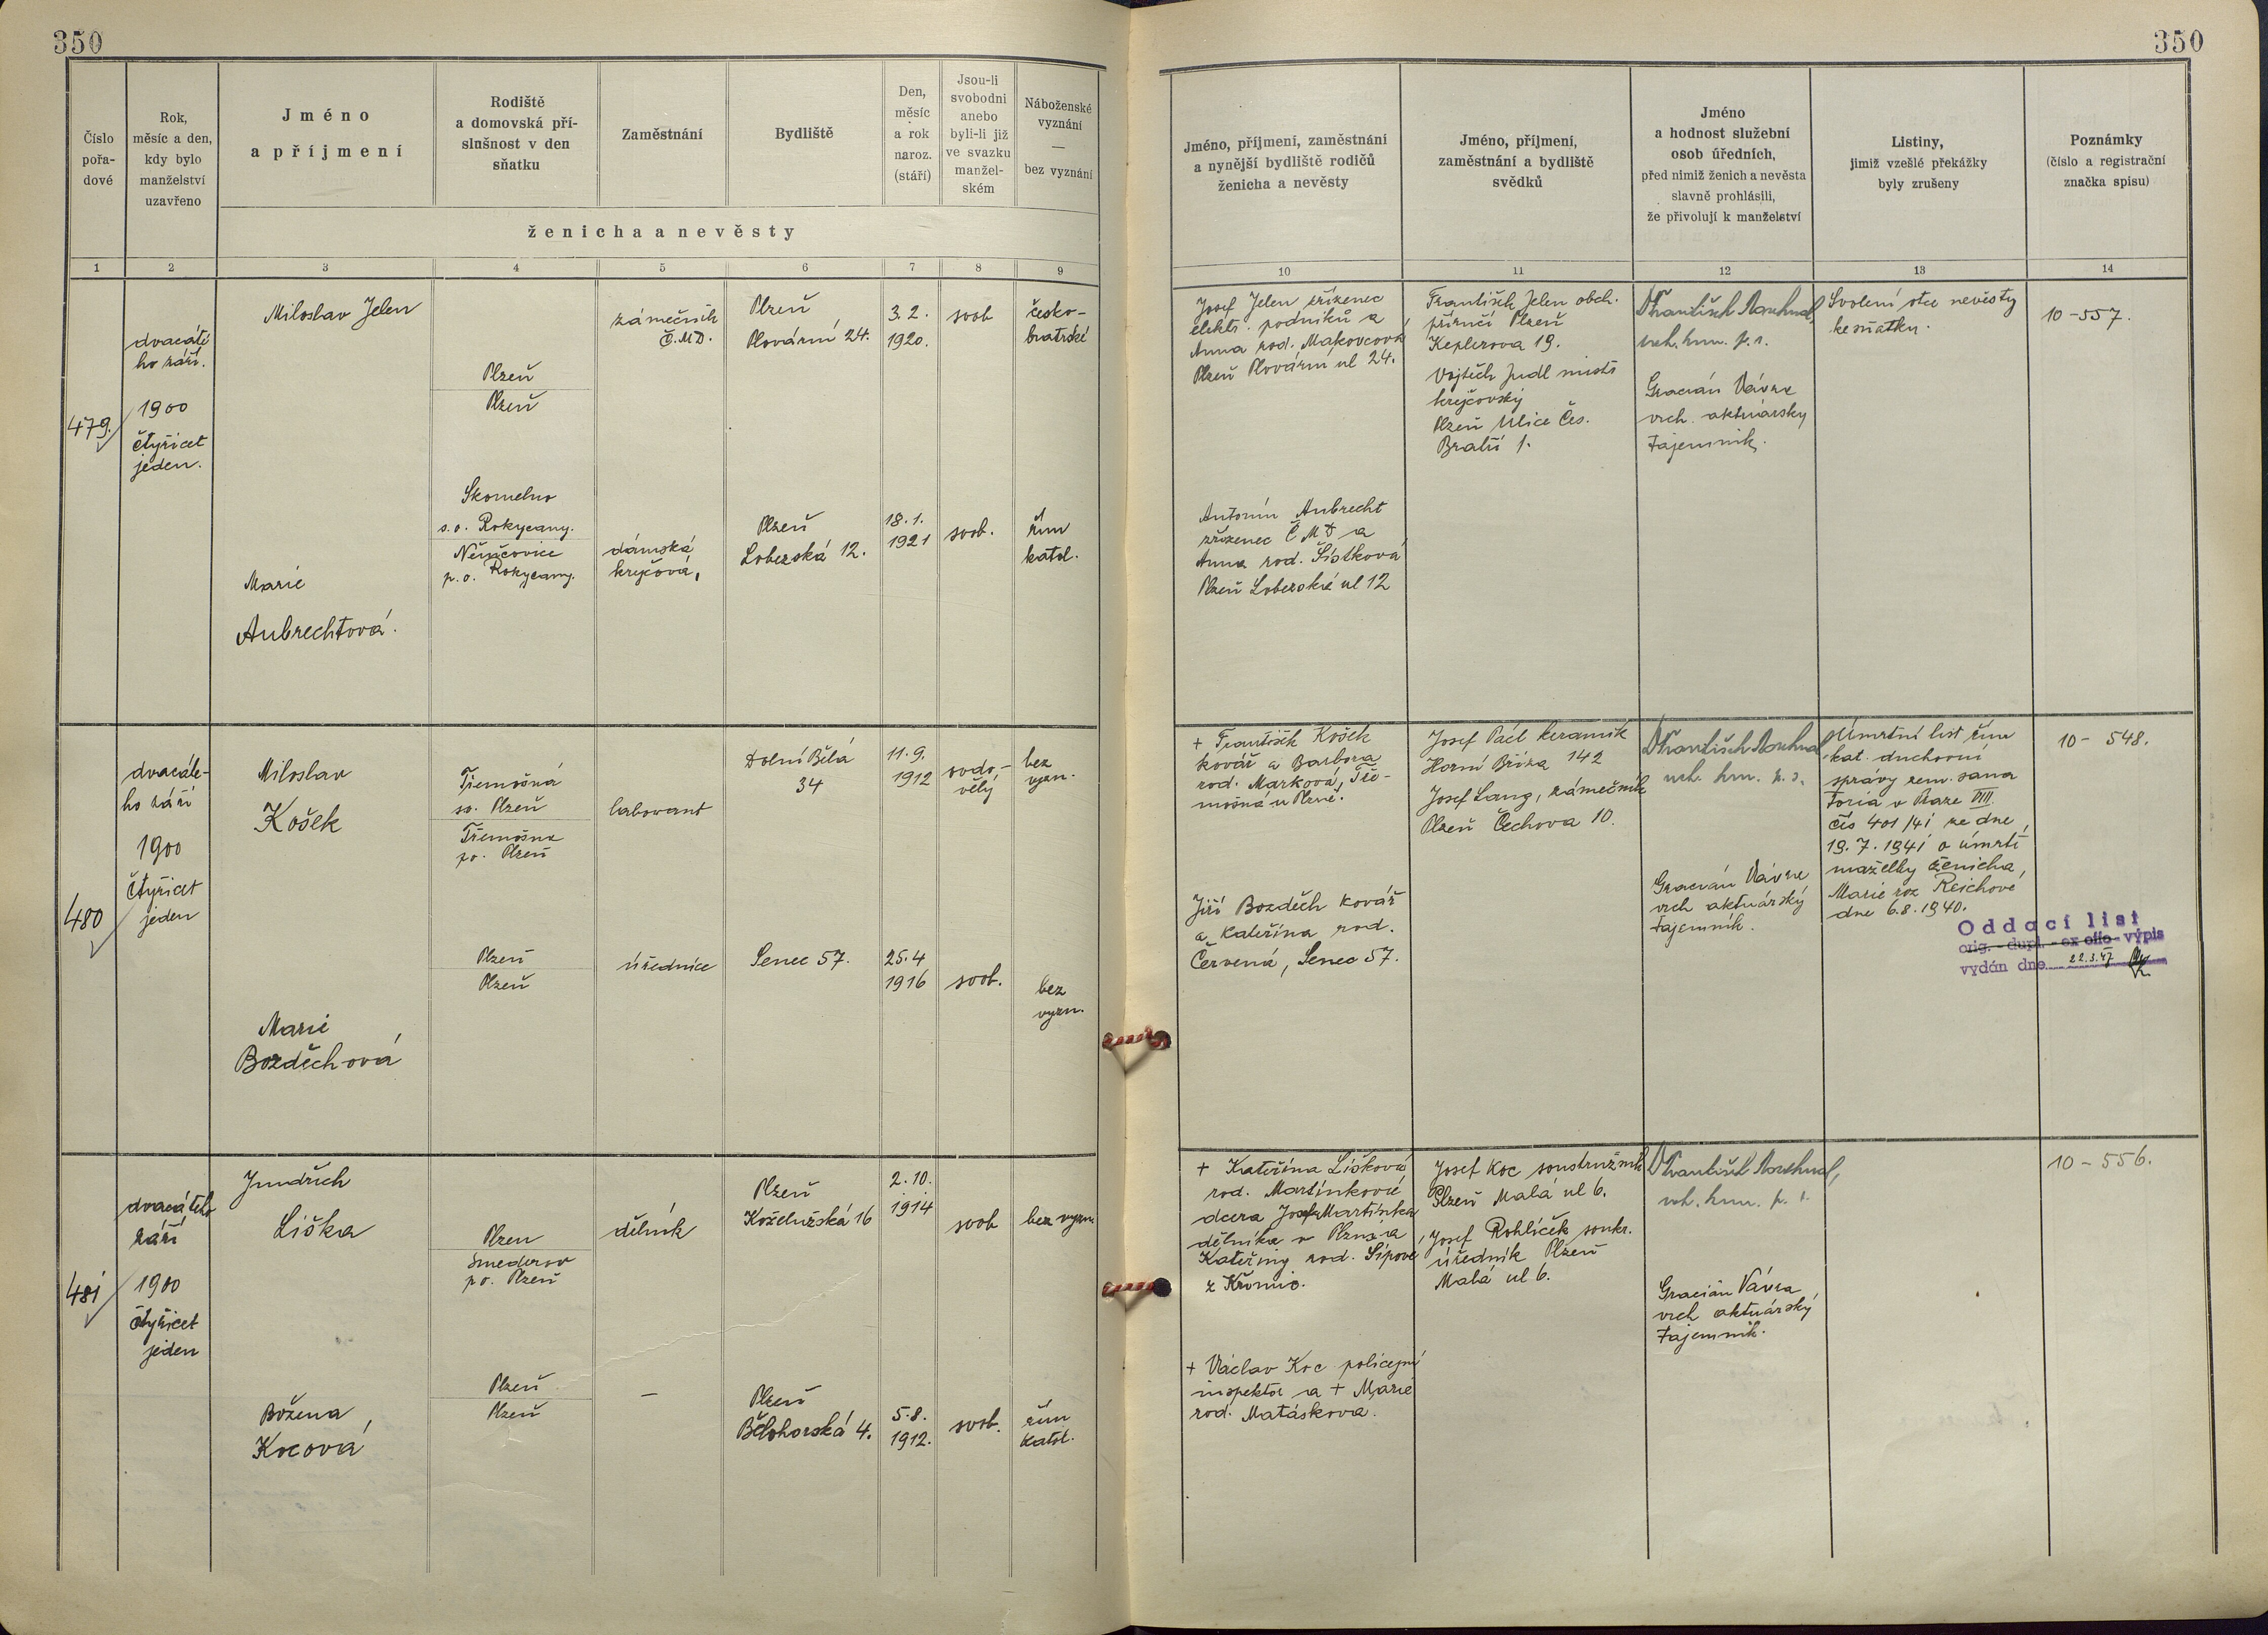 350
350
Číslo
pořa-
dové
Rok,
měsíc a den,
kdy bylo
manželství
uzavřeno
Jméno
a příjmení
Rodiště
a domovská pří-
slušnost v den
sňatku
Zaměstnání
Bydliště
Den,
měsíc
a rok
naroz.
(stáří)
Jsou-li
svobodni
anebo
byli-li již
ve svazku
manžel-
ském
Náboženské
vyznání
—
bez vyznání
ženicha a nevěsty
Jméno, příjmení, zaměstnání
a nynější bydliště rodičů
ženicha a nevěsty
Jméno, příjmení,
zaměstnání a bydliště
svědků
Jméno
a hodnost služební
osob úředních,
před nimiž ženich a nevěsta
slavně prohlásili,
že přivolují k manželství
Listiny,
jimiž vzešlé překážky
byly zrušeny
Poznámky
(číslo a registrační
značka spisu)
1 2 3 4 5 6 7 8 9 10 11 12 13 14
479.
dvacáté
ho září.
1900
čtyřicet
jeden.
Miloslav Jelen
Plzeň
Plzeň
zámečník
Č.M.D.
Plzeň
Plovární 24.
3.2.
1920.
svob
česko-
bratrské
Marie
Aubrechtová.
s.o. Rokycany.
p.o. Rokycany.
dámská
krejčová,
Plzeň
Lobezská 12.
18.1.
1921
svob.
řím
katol.
Josef Jelen zřízenec
elektr. podniků a
Anna rod. Makovcová
Plzeň Plovární ul 24.
Antonín Aubrecht
zřízenec ČMD a
Anna rod. Šístková
Plzeň Lobezské ul 12
František Jelen obch.
příručí Plzeň
Keplerova 19.
Vojtěch Judl mistr
krejčovský
Plzeň Ulice Čes.
Bratří 1.
vrch. kom. p. r.
Gracián Vávra
vrch. aktuársky
tajemník.
Svolení otce nevěsty
ke sňatku.
10-557.
480
dvacáté-
ho září
1900
čtyřicet
jeden
Miloslav
Košek
Třemošná
so. Plzeň
Třemošna
po. Plzeň
laborant
Dolní Bělá
34
11.9.
1912
ovdo-
vělý
bez
vyzn.
Marie
Bozděchová
Plzeň
Plzeň
úřednice
Senec 57.
25.4
1916
svob.
bez
vyzn.
+ František Košek
kovář a Barbora
rod. Marková, Tře-
mošná u Plzně.
Jiří Bozděch kovář
a Kateřina rod.
Červená, Senec 57.
Josef Pácl keramik
Horní Bříza 142
Josef Lang, zámečník
Plzeň Čechova 10.
vrch. kom. p. r.
Gracián Vávra
vrch aktuárský
tajemník.
Úmrtní list řím
kat. duchovní
správy zem. sana
toria v Praze VIII.
čís 401/41 ze dne
19.7.1941 o úmrtí
manželky ženicha,
Marie roz Reichové
dne 6.8.1940.
10- 548.
Oddací list
orig. - dupl. - ex offo - výpis
vydán dne 22.3.47
481
dvacátého
září
1900
čtyřicet
jeden
Jindřich
Liška
Plzen
Smederov
po. Plzeň
dělník
Plzeň
Koželužská 16
2.10.
1914
svob
bez vyzn
Božena
Kocová
Plzeň
Plzeň
—
Plzeň
Bělohorská 4.
5.8.
1912.
svob.
řím
katol.
+ Kateřina Lišková
rod. Martínkové
dcera Josefa Martínka
dělníka v Plzni a
Kateřiny rod. Šípové
z Křimic.
+ Václav Koc policejní
inspektor a + Marie
rod. Matáskova.
Josef Koc soustružník
Plzeň Malá ul 6.
Josef Rohlíček soukr.
úředník Plzeň
Malá ul 6.
vrch. kom. p. r.
Gracián Vávra
vrch aktuárský
tajemník.
10-556.